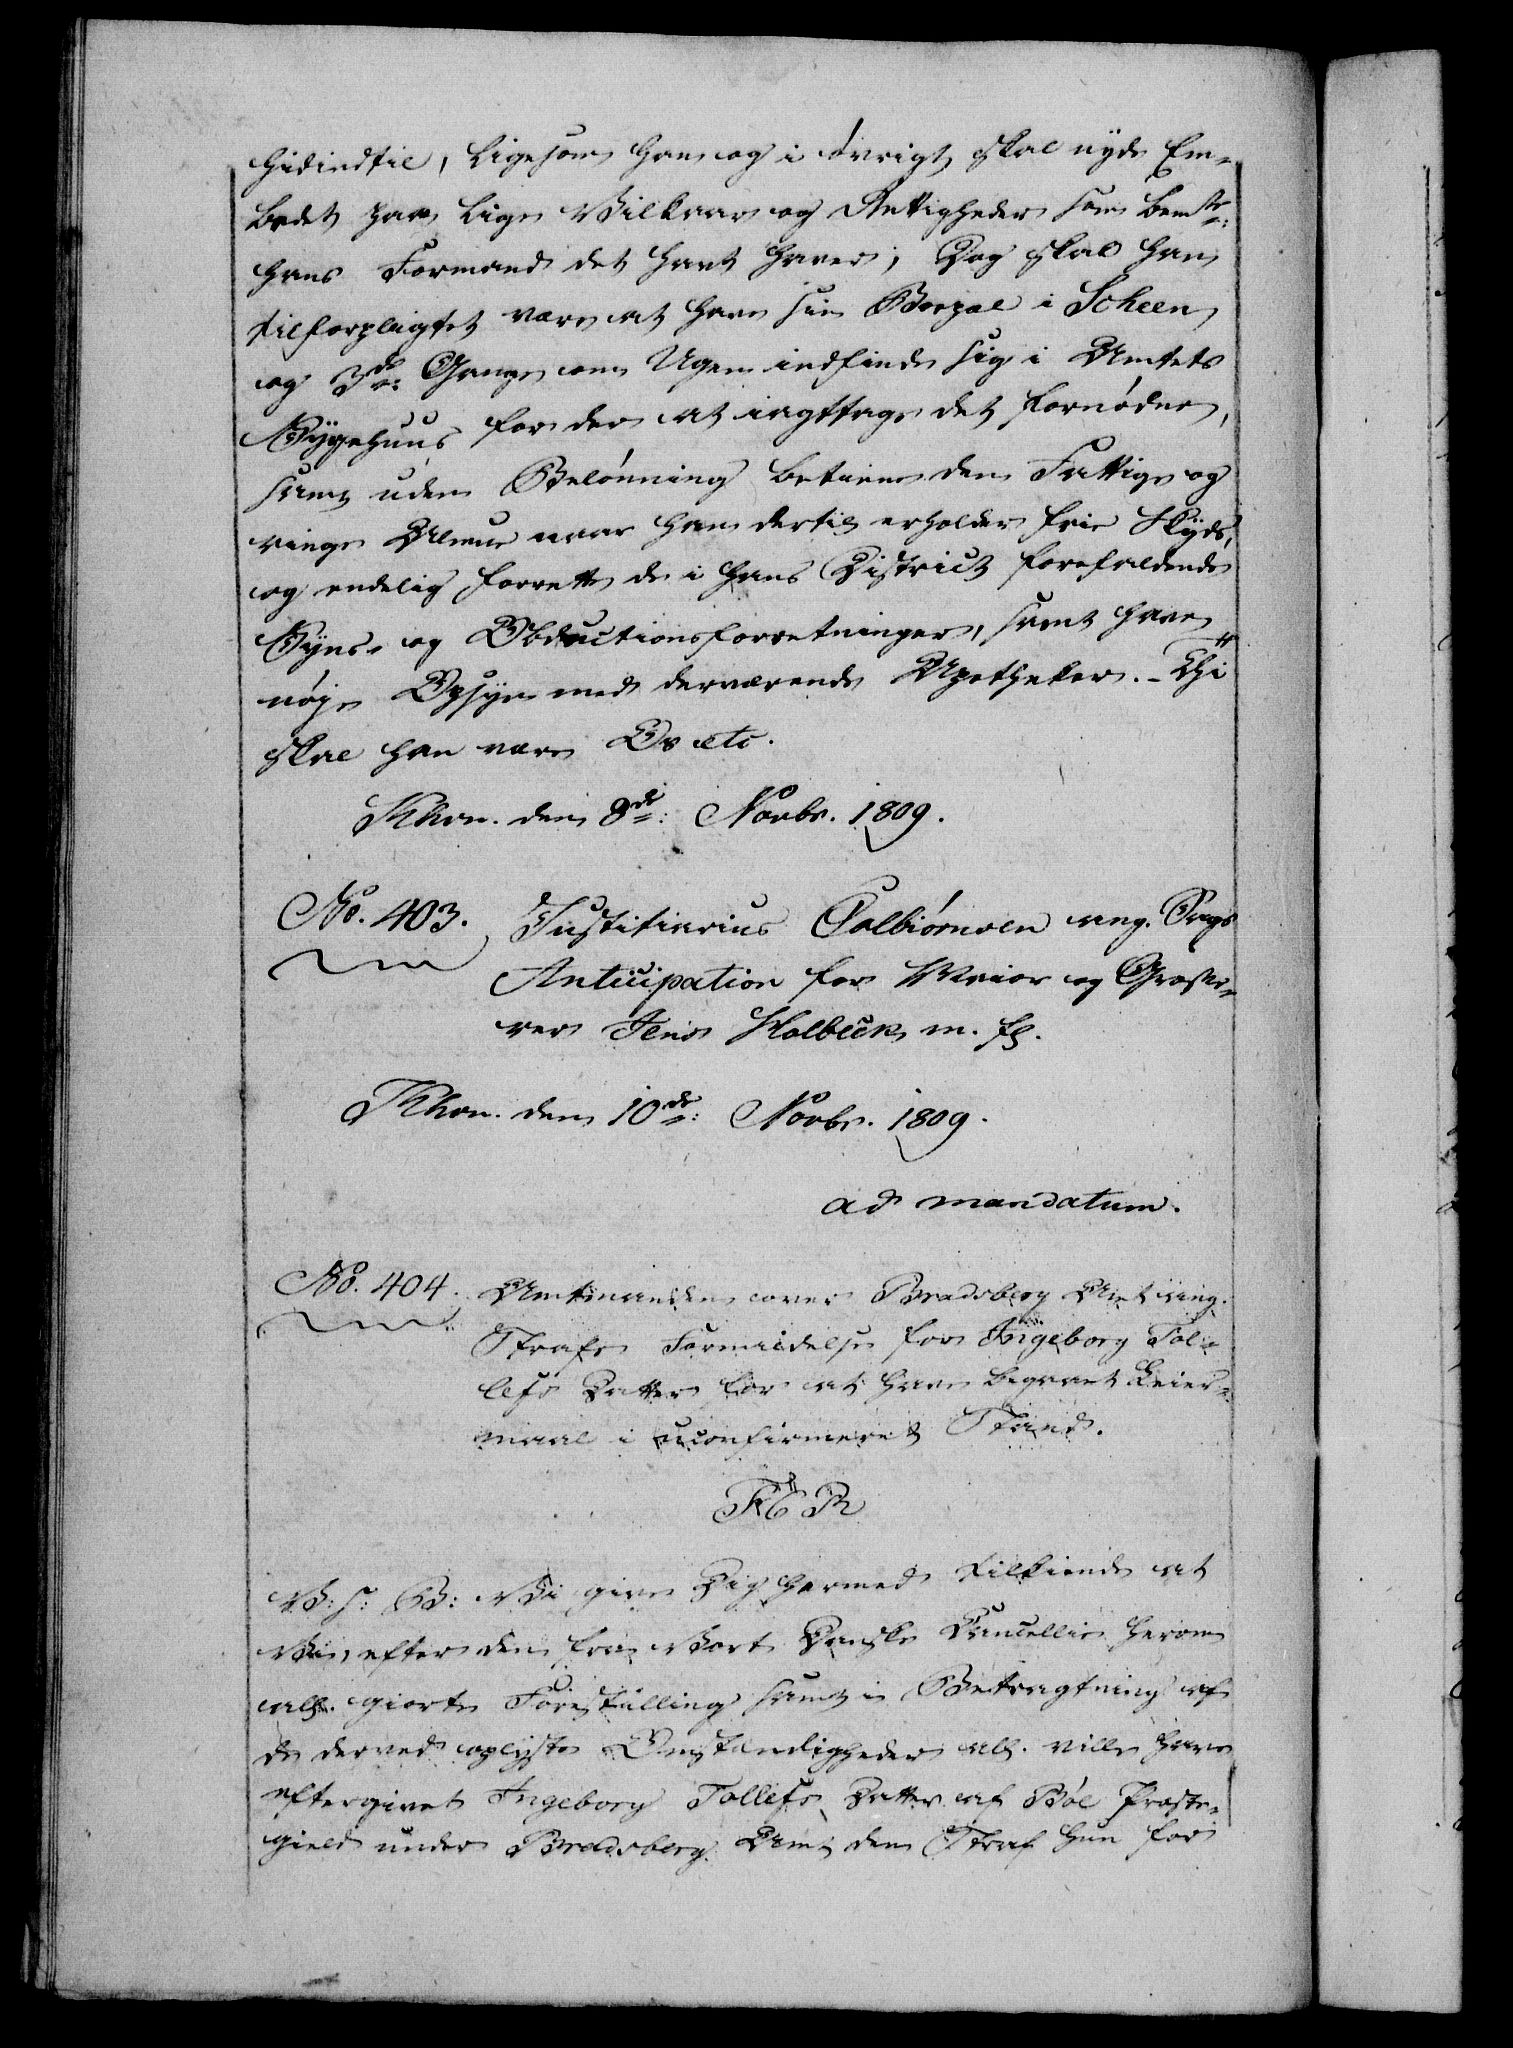 hidindtil, ligesom han og i övrigt skal nyde Em-
bedet paa lige Vilkaar og Rettigheder som bemte:
hans Formand det havt haver; Dog skal han
tilforpligtet være at have sin Boepæl i Scheen,
og 3de: Gange om Ugen indfinde sig i Amtets
Sygehuus for der at iagttage det fornødne,
samt uden Belønning betiene den Fattige og
ringe Almue naar han dertil erholder frie Skyds,
og endelig forrette de i hans District forefaldende
Syns- og Obductionsforretninger, samt have
nøje Opsyn med derværende Apotheker. - Thi
skal han være Os etc.
Khvn. den 8de: Novbr. 1809.
No. 403. Justitiarius Colbiørnsen ang. Sags
Anticipation for Maior og Grosse-
rer Jens Holbeck m. fl.
Khvn. den 10de: Novbr. 1809.
ad mandatum.
No. 404. Amtmanden over Bradsberg Amt ang.
Strafs Formildelse for Ingeborg Tol-
lefs Datter for at have begaaet Leier-
maal i uconfirmeret Stand.
F6R
V: s: G: Vi give Dig hermed tilkiende at
Vi, efter den fra Vort Danske Cancellie herom
all. giorte Forestilling samt i Betragtning af
de derved oplyste Omstændigheder all. ville have
eftergivet Ingeborg Tollefs Datter af Böe Præste-
gield under Bradsberg Amt den Straf hun for